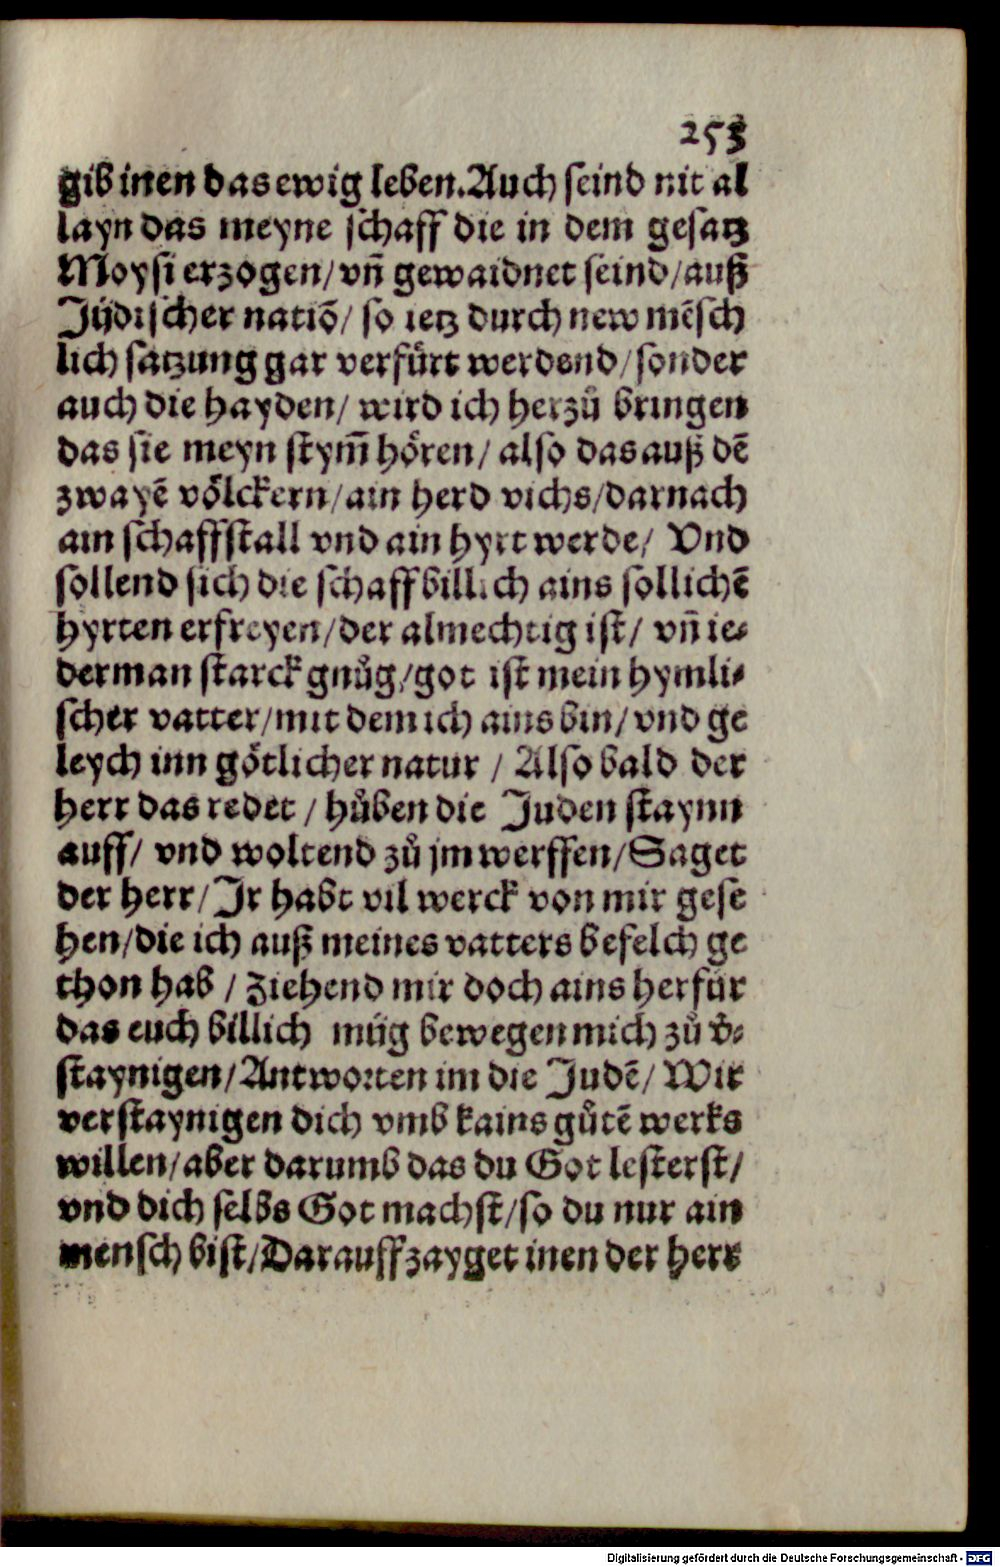 253
gib inen das ewig leben. Auch seind nit al
layn das meyne schaff die in dem gesatz
Moysi erzogen/ vn̄ gewaidnet seind/ auß
Jüdischer natiō/ so ietz durch new mēsch
lich satzung gar verfürt werdend/ sonder
auch die hayden/ wird ich herzů bringen
das sie meyn stym̄ hören/ also das auß dē
zwayē völckern/ ain herd vichs/ darnach
ain schaffstall vnd ain hyrt werde/ Vnd
sollend sich die schaff billich ains sollichē
hyrten erfreyen/ der almechtig ist/ vn̄ ie⸗
derman starck gnůg/ got ist mein hymli⸗
scher vatter/ mit dem ich ains bin/ vnd ge
leych inn götlicher natur / Also bald der
herr das redet / hůben die Juden staynn
auff/ vnd woltend zů jm werffen/ Saget
der herr/ Jr habt vil werck von mir gese
hen/ die ich auß meines vatters befelch ge
thon hab / Ziehend mir doch ains herfür
das euch billich müg bewegen mich zů v̄⸗
staynigen/ Antworten im die Judē/ Wir
verstaynigen dich vmb kains gůtē werks
willen/ aber darumb das du Got lesterst/
vnd dich selbs Got machst/ so du nur ain
mensch bist/ Darauff zayget inen der herr
Digitalisierung gefördert durch die Deutsche Forschungsgemeinschaft - DFG